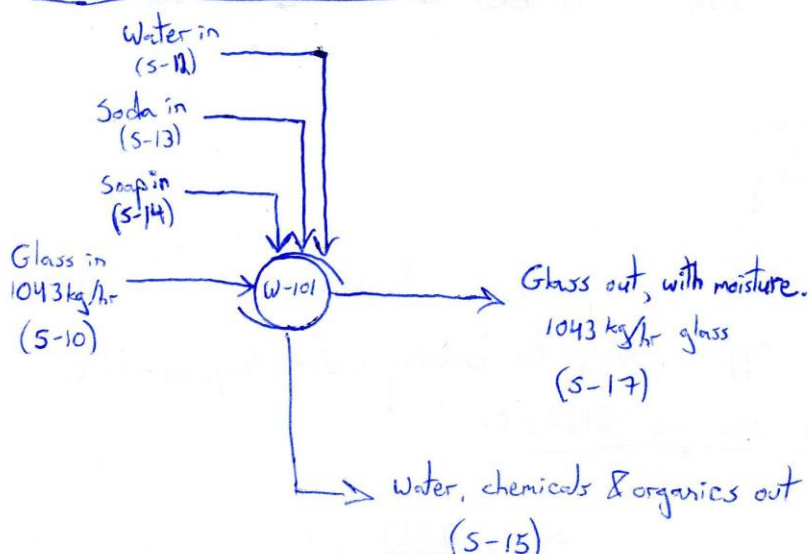 Water in
(S-12)
Soda in
(S-13)
Soap in
(S-14)
Glass in
1043 kg/hr
(S-10)
W-101
Glass out, with moisture.
1043 kg/hr glass
(S-17)
Water, chemicals & organics out
(S-15)